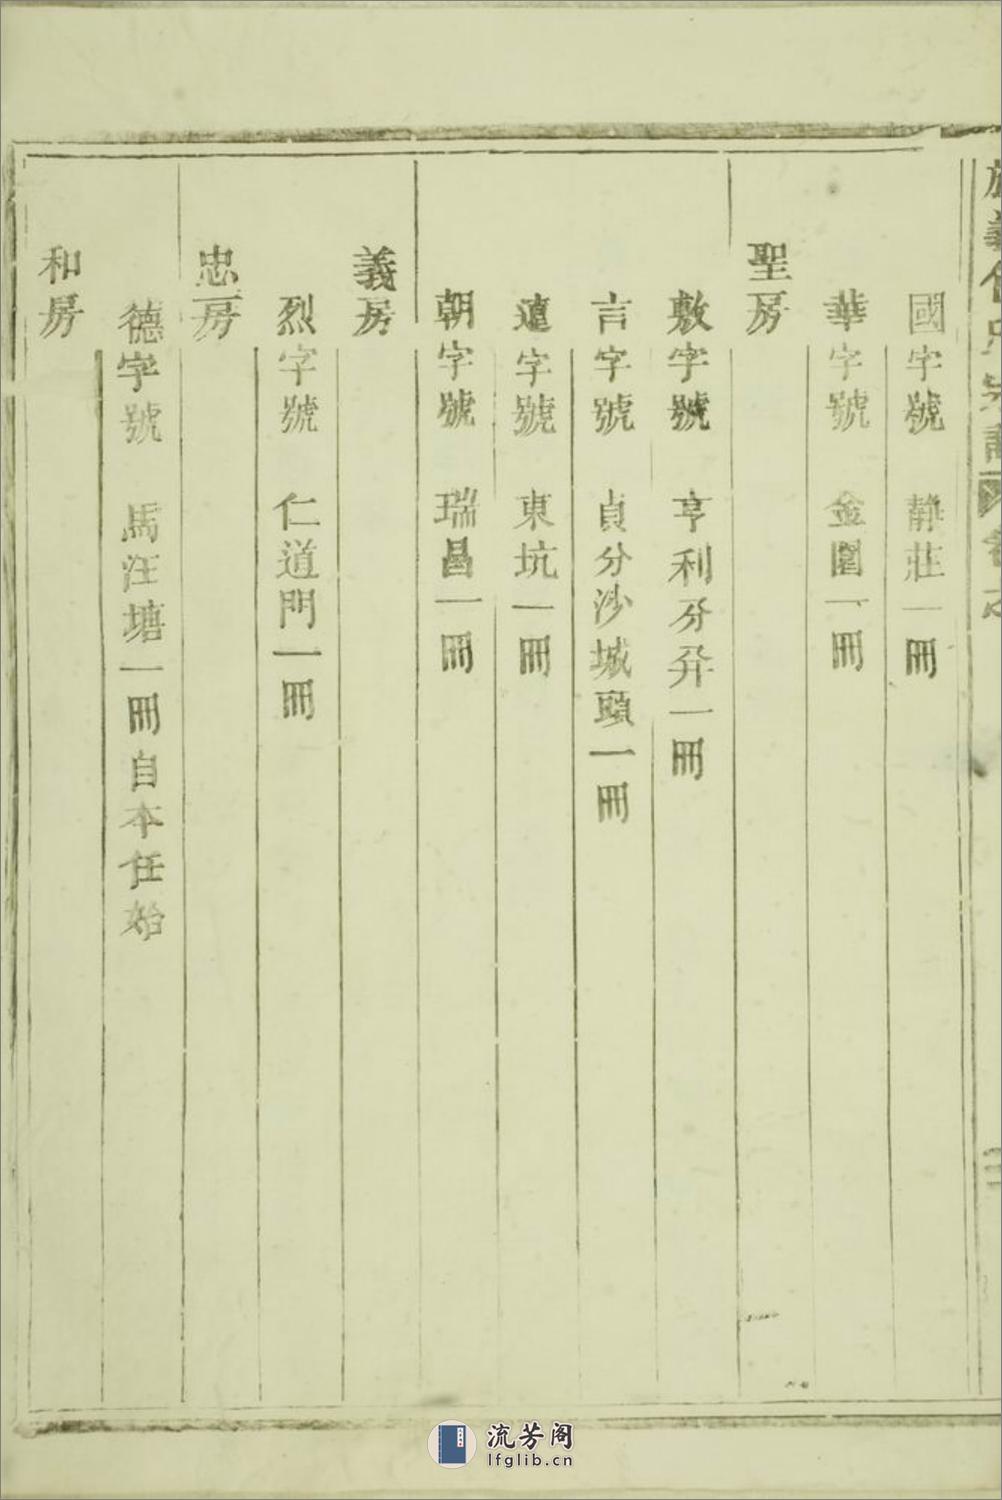 國字號　靜莊一冊
華字號　金圍一冊
聖房
敷字號　亨利分秊一冊
言字號　貞分沙城頭一冊
遠字號　東坑一冊
朝字號　瑞昌一冊
義房
烈字號　仁道門一冊
忠房
德字號　馬汪塘一冊自本任始
和房
流芳阁
lfglib.cn